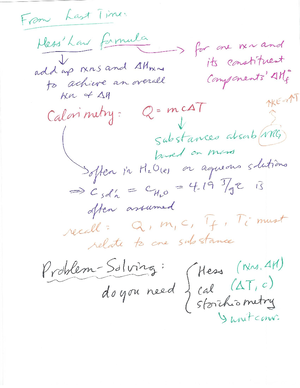 From Last Time:
Hess' Law formula
for one rxn and
its constituent
components' ΔHf°
add up rxns and ΔHrxns
to achieve an overall
rxn & ΔH
Calorimetry: Q = mcΔT
substances absorb
based on mass
often in H2O(l) or aqueous solutions
⇒ Csol'n = CH2O = 4.19 J/g°C is
often assumed
recall: Q, m, c, Tf, Ti must
relate to one substance
Problem-Solving:
do you need
Hess (rxns, ΔH)
cal (ΔT, c)
stoichiometry